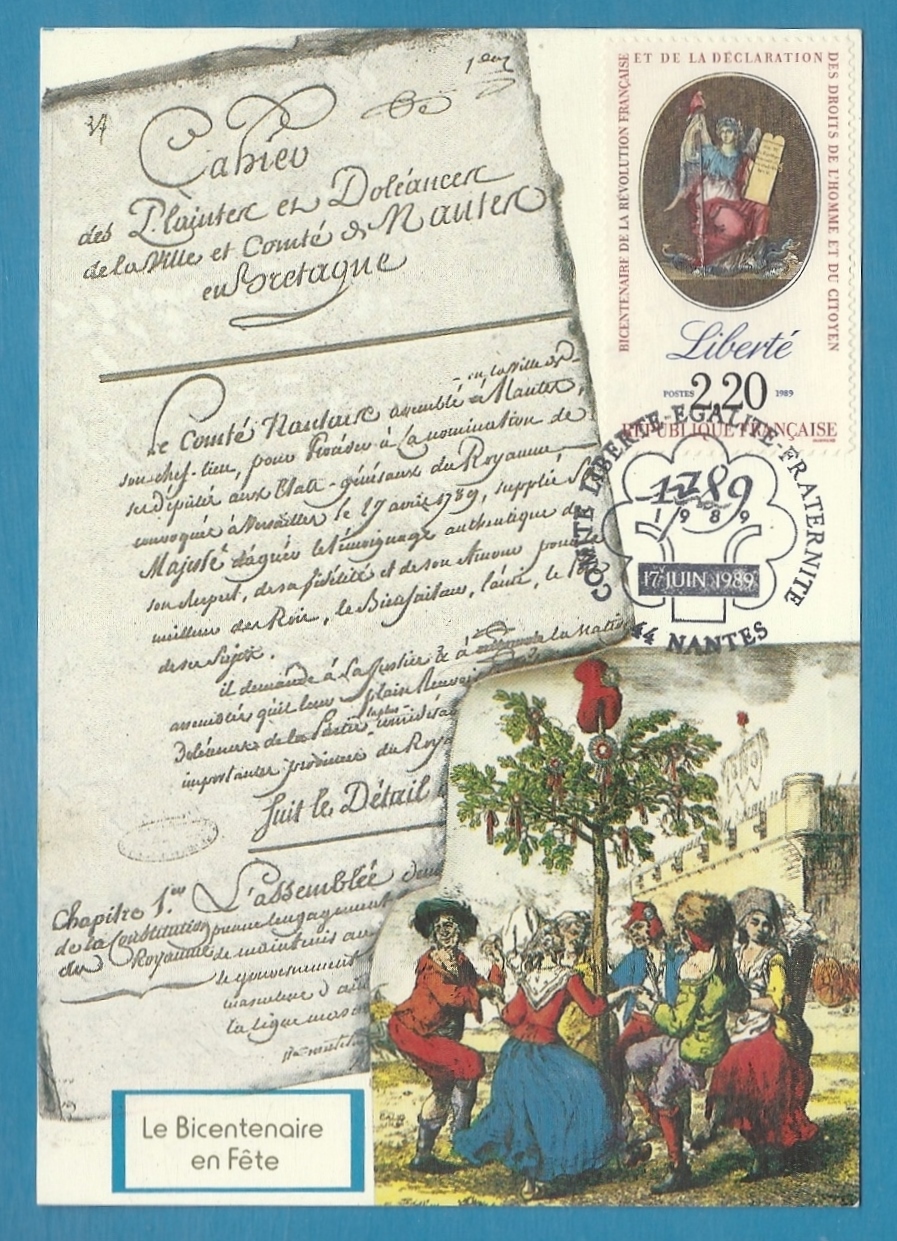 1er
Cahier
des Plaintes et Doléances
de la Ville et Comté de Nantes
en Bretagne
en la Ville de
Le Comté Nantais assemblé à Nantes,
son chef-lieu, pour Procéder à la nomination de
ses députés aux Etats-généraux du Royaume,
convoqués à Versailles le 27 avril 1789, supplie Sa
Majesté d'agréer le témoignage authentique de
son respect, de sa fidélité et de son Amour pour le
meilleur des Rois, le Bienfaiteur, l'ami, le Père
de ses Sujets.
il demande à la Justice & à la Nation
assemblées qu'il leur plaise
Doléances de la Partie
importantes provinces du Roy
Suit le Détail
Chapitre 1.er L'assemblée
de la Constitution prenne l'engagement
du Royaume de maintenir au
le gouvernement
masculine
la ligne masc
BICENTENAIRE DE LA RÉVOLUTION FRANÇAISE
ET DE LA DÉCLARATION
DES DROITS DE L'HOMME ET DU CITOYEN
Liberté
POSTES 2,20 1989
RÉPUBLIQUE FRANÇAISE
COMITE LIBERTE-EGALITE-FRATERNITE
1789
1989
17 JUIN 1989
44 NANTES
Le Bicentenaire
en Fête